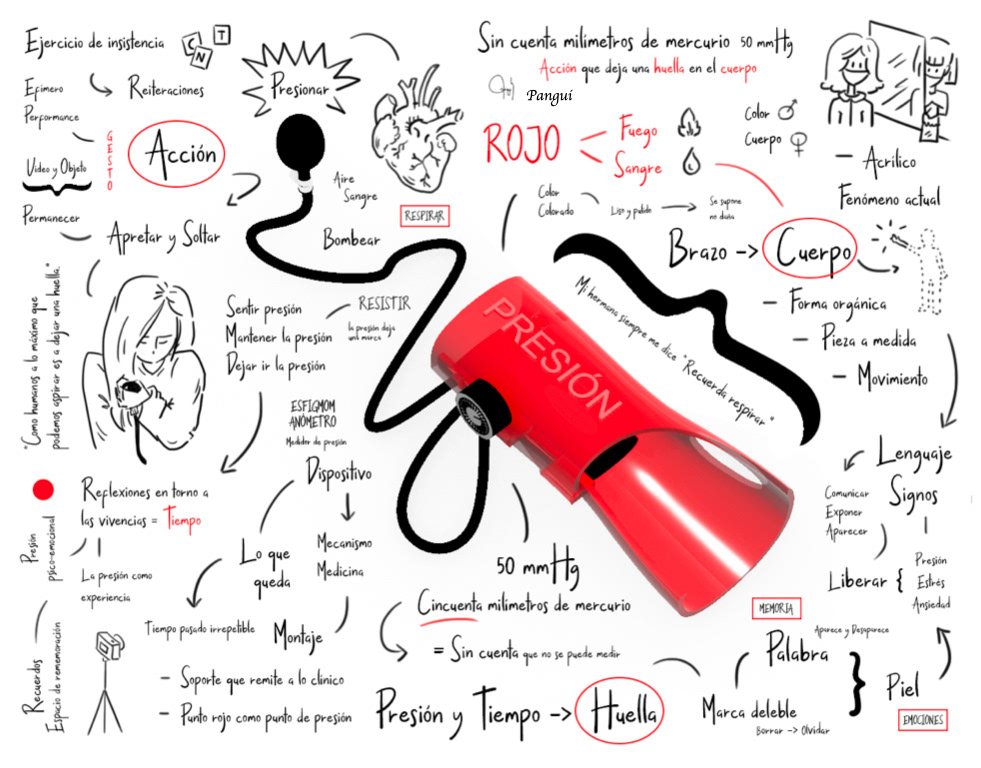 Ejercicio de insistencia
C N T
Efímero
Performance
Reiteraciones
Video y Objeto
Permanecer
GESTO
Acción
Apretar y Soltar
Presionar
Aire
Sangre
Bombear
RESPIRAR
Sin cuenta milímetros de mercurio 50 mmHg
Acción que deja una huella en el cuerpo
Panguí
ROJO
Fuego
Sangre
Color
Colorado
Liso y pulido
Se supone
no daña
Color ♂
Cuerpo ♀
Acrílico
Fenómeno actual
Brazo -> Cuerpo
- Forma orgánica
- Pieza a medida
- Movimiento
Mi hermana siempre me dice "Recuerda respirar"
"Como humanos a lo máximo que
podemos aspirar es a dejar una huella."
Sentir presión
Mantener la presión
Dejar ir la presión
RESISTIR
la presión deja
una marca
PRESIÓN
ESFIGMOM
ANÓMETRO
Medidor de presión
Dispositivo
Mecanismo
Medicina
Reflexiones en torno a
las vivencias = Tiempo
Presión
psico-emocional
La presión como
experiencia
Lo que
queda
Recuerdos
Espacio de rememoración
Tiempo pasado irrepetible
Montaje
- Soporte que remite a lo clínico
- Punto rojo como punto de presión
50 mmHg
Cincuenta milímetros de mercurio
= Sin cuenta que no se puede medir
Presión y Tiempo -> Huella
Lenguaje
Signos
Comunicar
Exponer
Aparecer
Liberar {
Presión
Estrés
Ansiedad
MEMORIA
Aparece y Desaparece
Palabra
Marca deleble
Borrar -> Olvidar
Piel
EMOCIONES